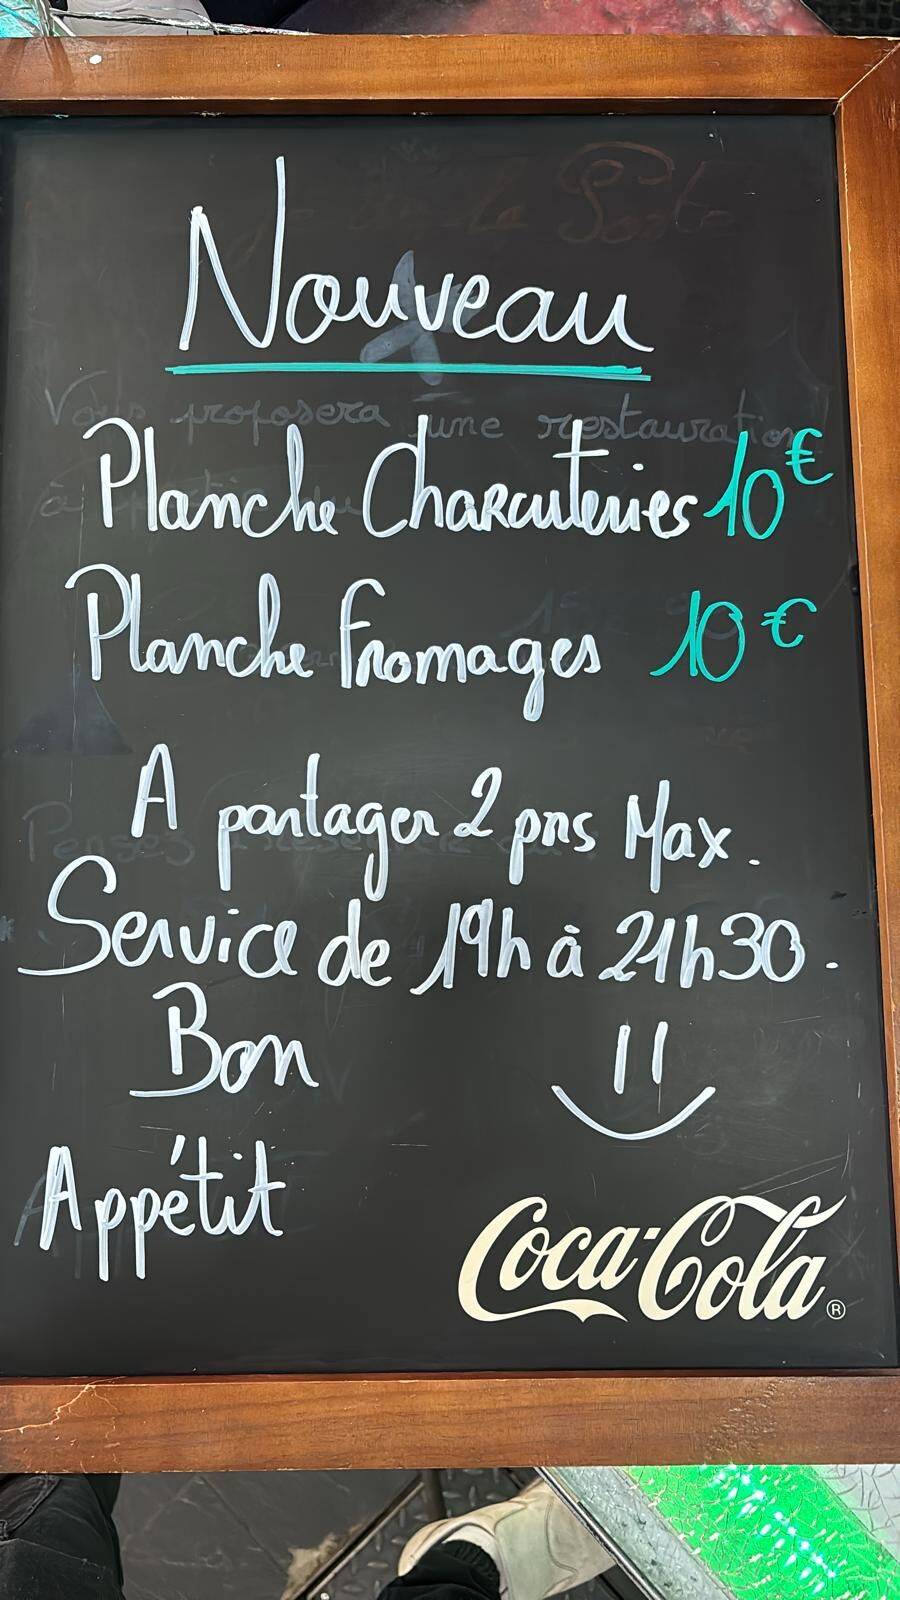 Nouveau
Vous proposera une restauration
Planche Charcuteries 10€
Planche fromages 10€
A partager 2 prs Max.
Service de 19h à 21h30.
Bon
Appétit
Coca-Cola ®